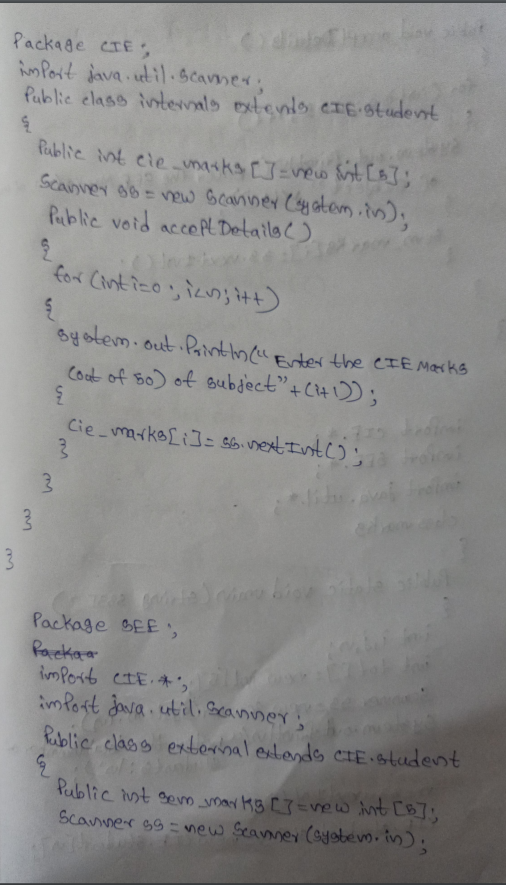 Package CIE;
import java.util.Scanner;
Public class internals extends CIE.student
{
Public int cie_marks[]=new int[5];
Scanner ss=new Scanner(system.in);
Public void acceptDetails()
{
for(int i=0;i<n;i++)
{
system.out.Println("Enter the CIE Marks
(out of 50) of subject"+(i+1));
{
cie_marks[i]=ss.nextInt();
}
}
}
}
Package SEE;
import CIE.*;
import java.util.Scanner;
Public class external extends CIE.student
{
Public int sem_marks[]=new int[5];
Scanner ss=new Scanner(system.in);